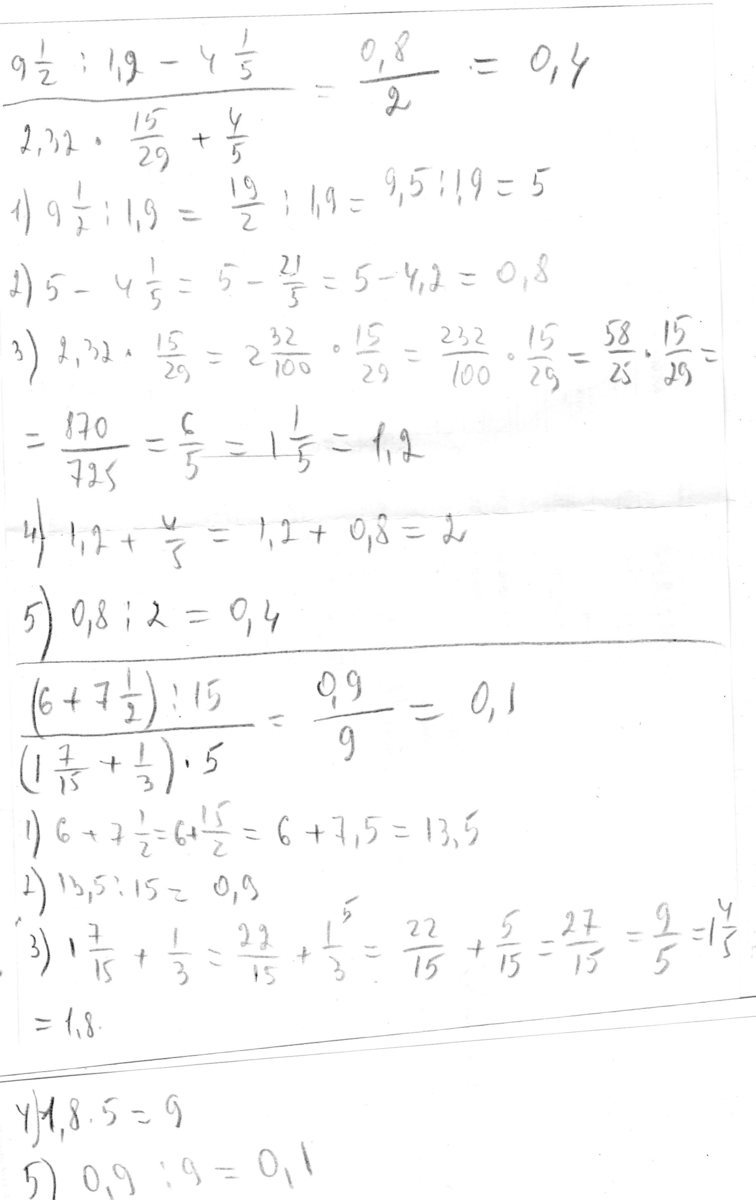 9 1/2 : 1,9 - 4 1/5 / 2,32 · 15/29 + 4/5 = 0,8/2 = 0,4
1) 9 1/2 : 1,9 = 19/2 : 1,9 = 9,5 : 1,9 = 5
2) 5 - 4 1/5 = 5 - 21/5 = 5 - 4,2 = 0,8
3) 2,32 · 15/29 = 2 32/100 · 15/29 = 232/100 · 15/29 = 58/25 · 15/29 =
= 870/725 = 6/5 = 1 1/5 = 1,2
4) 1,2 + 4/5 = 1,2 + 0,8 = 2
5) 0,8 : 2 = 0,4
(6 + 7 1/2) : 15 / (1 7/15 + 1/3) · 5 = 0,9/9 = 0,1
1) 6 + 7 1/2 = 6 + 15/2 = 6 + 7,5 = 13,5
2) 13,5 : 15 = 0,9
3) 1 7/15 + 1/3 = 22/15 + 1/3 5 = 22/15 + 5/15 = 27/15 = 9/5 = 1 4/5
= 1,8.
4) 1,8 · 5 = 9
5) 0,9 : 9 = 0,1